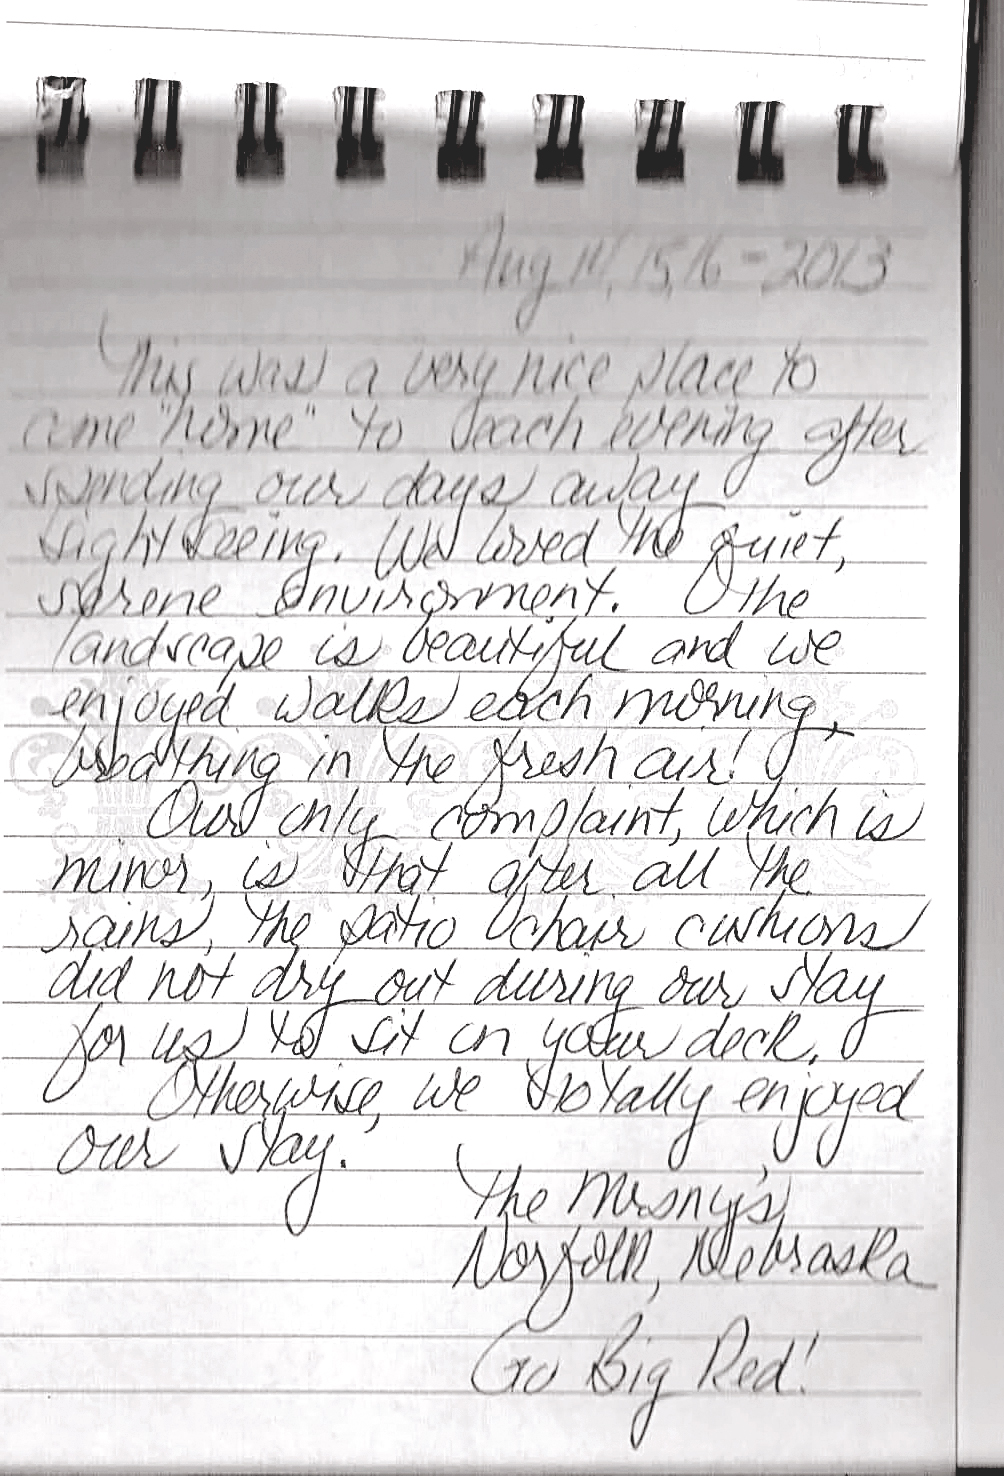 Aug 14, 15, 16 - 2013
This was a very nice place to
come "home" to each evening after
spending our days away
sightseeing. We loved the quiet,
serene environment. The
landscape is beautiful and we
enjoyed walks each morning,
breathing in the fresh air!
Our only complaint, which is
minor, is that after all the
rains, the patio chair cushions
did not dry out during our stay
for us to sit on your deck.
Otherwise, we totally enjoyed
our stay.
The Mrsny's
Norfolk, Nebraska
Go Big Red!